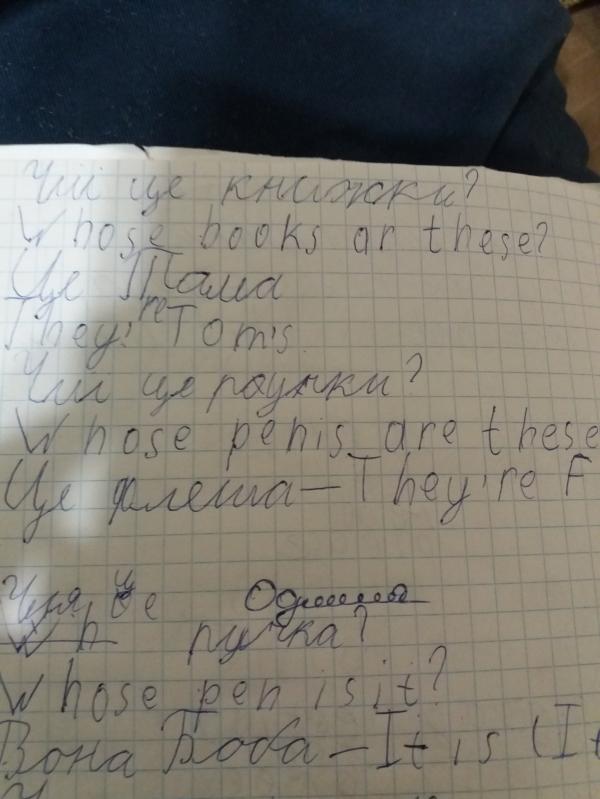 Чиї це книжки?
Whose books ar these?
Це Тома
They're Tom's
Чиї це ручки?
Whose penis are these
Це Флеша — They're F
Чия це
ручка?
Whose pen is it?
Вона Боба — It is (It